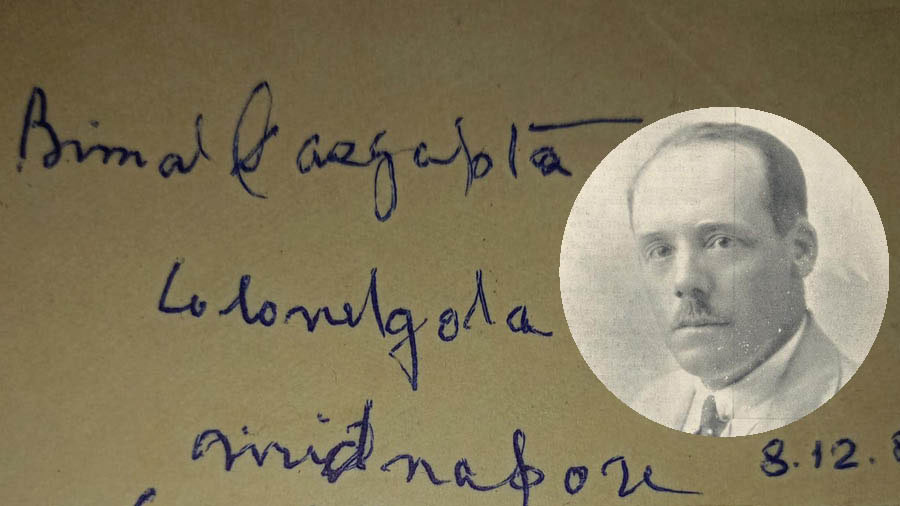 Bimal Dasgupta
Colonelgola
Midnapore
8.12.8